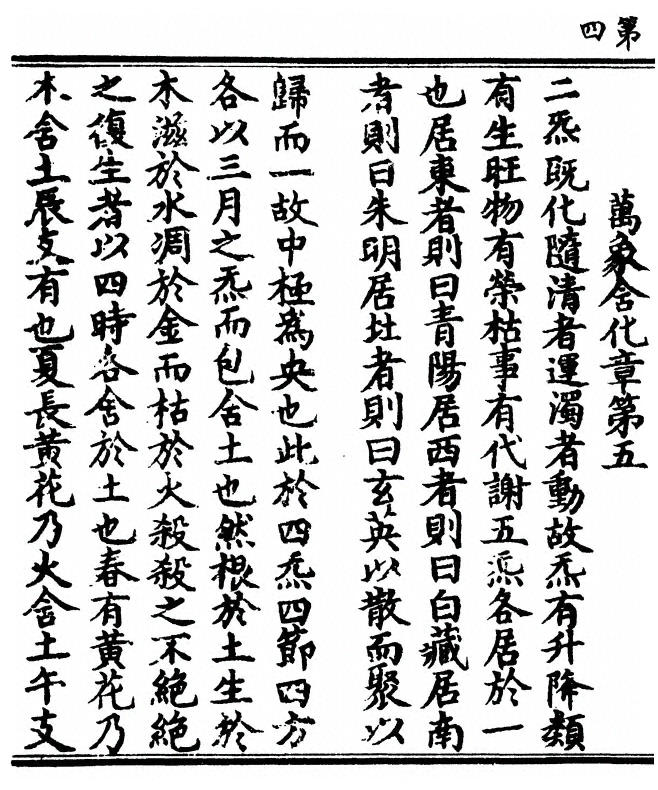 第四
萬象含化章第五
二炁既化隨清者運濁者動故炁有升降類
有生旺物有榮枯事有代謝五炁各居於一
也居東者則曰青陽居西者則曰白藏居南
者則曰朱明居北者則曰玄英以散而聚以
歸而一故中極為央也此於四炁四節四方
各以三月之炁而包含土也然根於土生於
木滋於水凋於金而枯於火殺殺之不絕絕
之復生者以四時各含於土也春有黃花乃
木含土辰支有也夏長黃花乃火含土午支